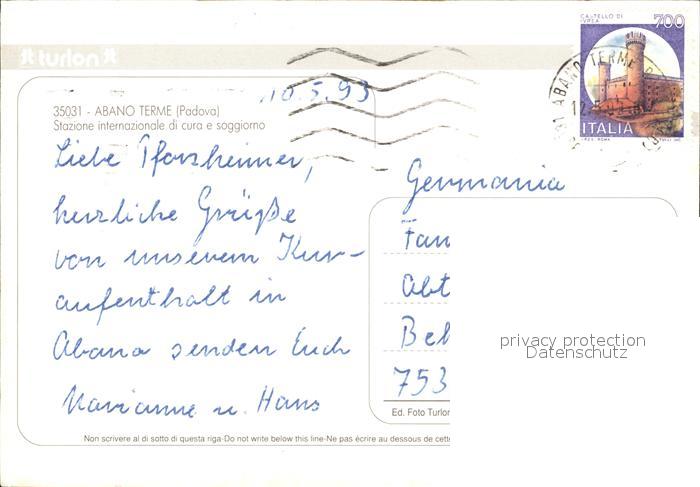 turlon
CASTELLO DI
IVREA
700
ITALIA
10.5.93
35031 - ABANO TERME (Padova)
Stazione internazionale di cura e soggiorno
Liebe Pforzheimer,
herzliche Grüße
von unserem Kur-
aufenthalt in
Abano senden Euch
Marianne u. Hans
Germania
Fam
Abt
Bel
753
privacy protection
Datenschutz
Ed. Foto Turlon
Non scrivere al di sotto di questa riga-Do not write below this line-Ne pas écrire au dessous de cett